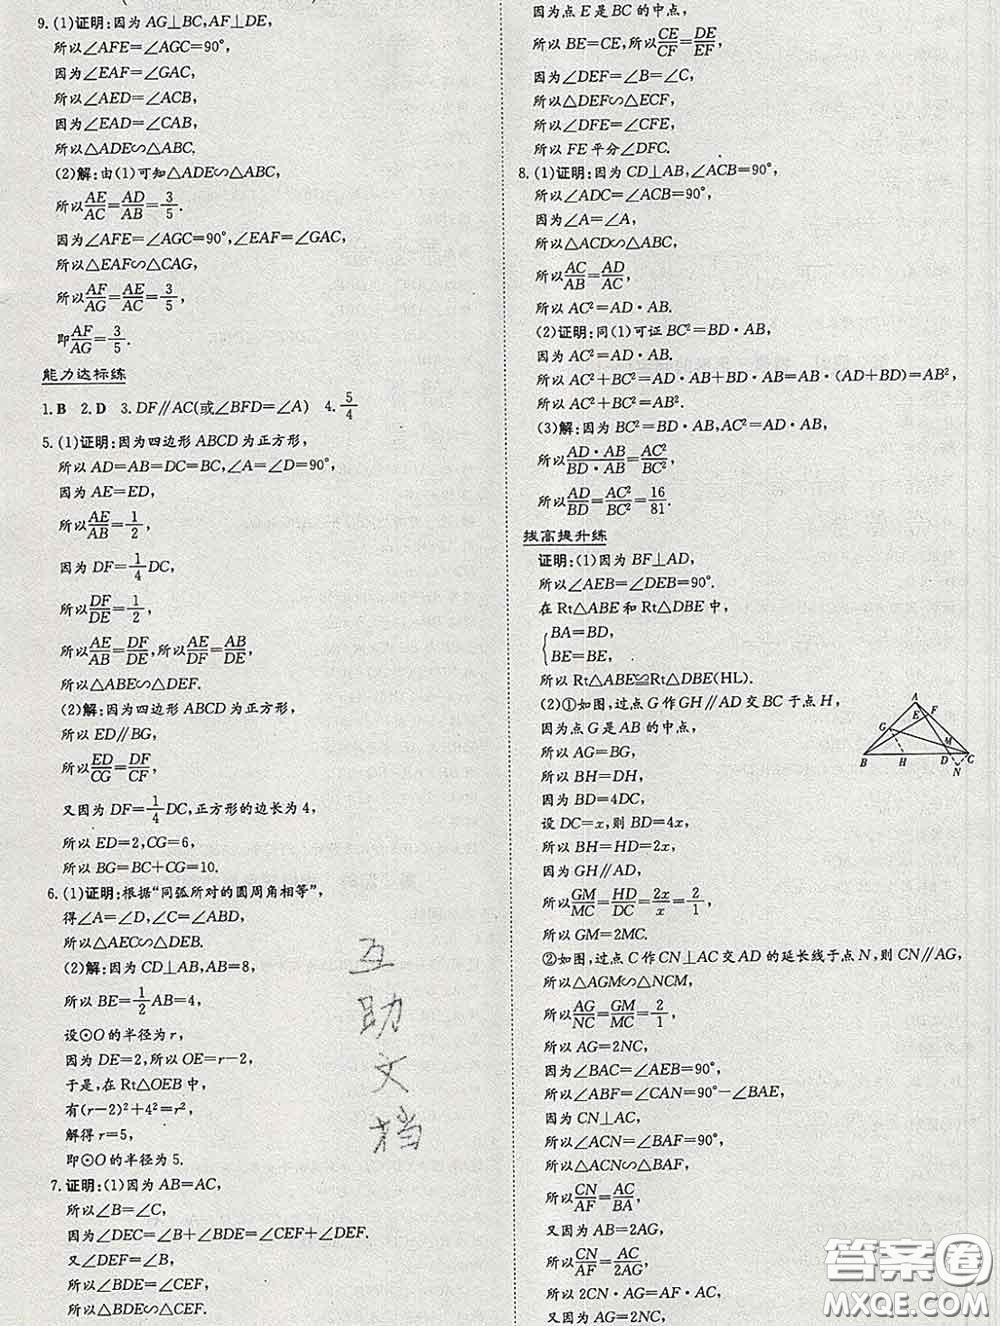 9. (1)证明:因为 AG⊥BC,AF⊥DE,
所以∠AFE=∠AGC=90°,
因为∠EAF=∠GAC,
所以∠AED=∠ACB,
因为∠EAD=∠CAB,
所以△ADE∽△ABC.
(2)解:由(1)可知△ADE∽△ABC,
所以AE/AC=AD/AB=3/5.
因为∠AFE=∠AGC=90°,∠EAF=∠GAC,
所以△EAF∽△CAG,
所以AF/AG=AE/AC=3/5,
即AF/AG=3/5.
能力达标练
1. B 2. D 3. DF∥AC(或∠BFD=∠A) 4. 5/4
5. (1)证明:因为四边形 ABCD 为正方形,
所以 AD=AB=DC=BC,∠A=∠D=90°,
因为 AE=ED,
所以AE/AB=1/2,
因为 DF=1/4DC,
所以DF/DE=1/2,
所以AE/AB=DF/DE,所以AE/DF=AB/DE,
所以△ABE∽△DEF.
(2)解:因为四边形 ABCD 为正方形,
所以 ED∥BG,
所以ED/CG=DF/CF,
又因为 DF=1/4DC,正方形的边长为 4,
所以 ED=2,CG=6,
所以 BG=BC+CG=10.
6. (1)证明:根据“同弧所对的圆周角相等”,
得∠A=∠D,∠C=∠ABD,
所以△AEC∽△DEB.
(2)解:因为 CD⊥AB,AB=8,
所以 BE=1/2AB=4,
设⊙O 的半径为 r,
因为 DE=2,所以 OE=r-2,
于是,在 Rt△OEB 中,
有(r-2)²+4²=r²,
解得 r=5,
即⊙O 的半径为 5.
7. 证明:(1)因为 AB=AC,
所以∠B=∠C,
因为∠DEC=∠B+∠BDE=∠CEF+∠DEF.
又∠DEF=∠B,
所以∠BDE=∠CEF,
所以△BDE∽△CEF.
因为点 E 是 BC 的中点,
所以 BE=CE,所以CE/CF=DE/EF,
因为∠DEF=∠B=∠C,
所以△DEF∽△ECF,
所以∠DFE=∠CFE,
所以 FE 平分∠DFC.
8. (1)证明:因为 CD⊥AB,∠ACB=90°,
所以∠ADC=∠ACB=90°,
因为∠A=∠A,
所以△ACD∽△ABC,
所以AC/AB=AD/AC,
所以 AC²=AD·AB.
(2)证明:同(1)可证 BC²=BD·AB,
因为 AC²=AD·AB,
所以 AC²+BC²=AD·AB+BD·AB=AB·(AD+BD)=AB²,
所以 AC²+BC²=AB².
(3)解:因为 BC²=BD·AB,AC²=AD·AB,
所以AD·AB/BD·AB=AC²/BC²,
所以AD/BD=AC²/BC²=16/81.
拔高提升练
证明:(1)因为 BF⊥AD,
所以∠AEB=∠DEB=90°.
在 Rt△ABE 和 Rt△DBE 中,
{BA=BD,
BE=BE,
所以 Rt△ABE≌Rt△DBE(HL).
(2)①如图,过点 G 作 GH∥AD 交 BC 于点 H,
因为点 G 是 AB 的中点,
所以 AG=BG,
所以 BH=DH,
因为 BD=4DC,
设 DC=x,则 BD=4x,
所以 BH=HD=2x,
因为 GH∥AD,
所以GM/MC=HD/DC=2x/x=2/1,
所以 GM=2MC.
②如图,过点 C 作 CN⊥AC 交 AD 的延长线于点 N,则 CN∥AG,
所以△AGM∽△NCM,
所以AG/NC=GM/MC=2/1,
所以 AG=2NC,
因为∠BAC=∠AEB=90°,
所以∠ABF=∠CAN=90°-∠BAE,
因为 CN⊥AC,
所以∠ACN=∠BAF=90°,
所以△ACN∽△BAF,
所以CN/AF=AC/BA,
又因为 AB=2AG,
所以CN/AF=AC/2AG,
所以 2CN·AG=AF·AC,
又因为 AG=2NC,
A
F
E
G
M
B
H
D
C
N
互
助
文
档
答案卷
MXQE.COM